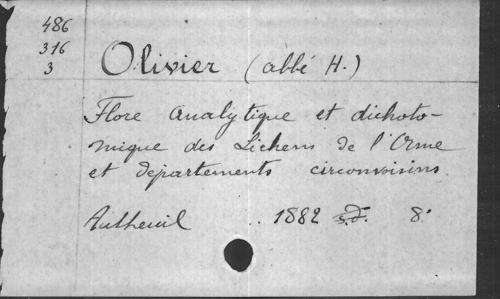 486
316
3
Olivier (abbé H.)
Flore analytique et dichoto-
mique des Lichens de l'Orne
et départements circonvoisins.
Autheuil .. 1882 8°